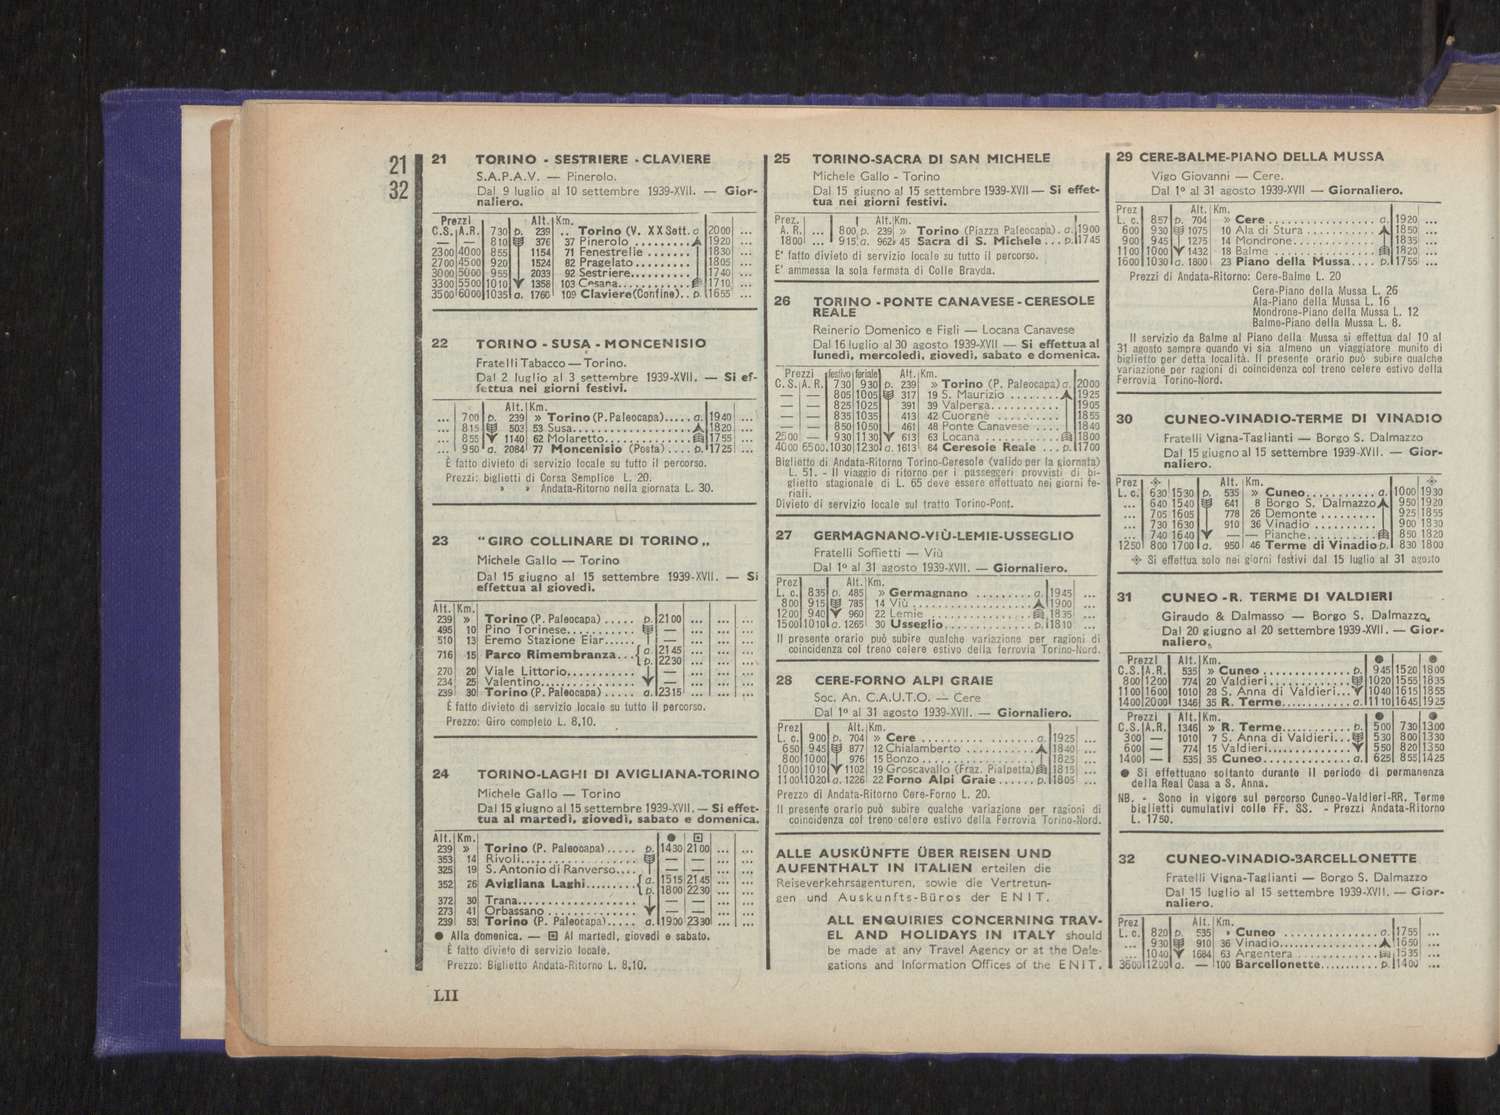 21
32
21 TORINO - SESTRIERE - CLAVIERE
S.A.P.A.V. — Pinerolo.
Dal 9 luglio al 10 settembre 1939-XVII. — Gior-
naliero.
Prezzi Alt. Km.
C.S. A.R. 730 p. 239 .. Torino (V. XX Sett. a 2000 ...
— — 810 376 37 Pinerolo ......... 1920 ...
2300 4000 855 1154 71 Fenestrelle ....... 1830 ...
2700 4500 920 1524 82 Pragelato ......... 1805 ...
3000 5000 955 2033 92 Sestriere.......... 1740 ...
3300 5500 1010 1358 103 Cesana........... 1710 ...
3500 6000 1035 a. 1760 109 Claviere (Confine).. p. 1655 ...
22 TORINO - SUSA - MONCENISIO
Fratelli Tabacco — Torino.
Dal 2 luglio al 3 settembre 1939-XVII. — Si ef-
fettua nei giorni festivi.
Alt. Km.
... 700 p. 239 » Torino (P. Paleocapa)..... a. 1940 ...
... 815 503 53 Susa................. 1820 ...
... 855 1140 62 Molaretto............. 1755 ...
... 950 a. 2084 77 Moncenisio (Posta) .... p. 1725 ...
È fatto divieto di servizio locale su tutto il percorso.
Prezzi: biglietti di Corsa Semplice L. 20.
» » Andata-Ritorno nella giornata L. 30.
23 "GIRO COLLINARE DI TORINO„
Michele Gallo — Torino
Dal 15 giugno al 15 settembre 1939-XVII. — Si
effettua al giovedì.
Alt. Km.
239 » Torino (P. Paleocapa) ..... p. 2100 ... ...
495 10 Pino Torinese............ — ... ...
510 13 Eremo Stazione Eiar...... — ... ...
716 15 Parco Rimembranza... { a. 2145 ... ...
p. 2230 ... ...
270 20 Viale Littorio............ — ... ...
234 25 Valentino............... — ... ...
239 30 Torino (P. Paleocapa) ..... a. 2315 ... ...
È fatto divieto di servizio locale su tutto il percorso.
Prezzo: Giro completo L. 8,10.
24 TORINO-LAGHI DI AVIGLIANA-TORINO
Michele Gallo — Torino
Dal 15 giugno al 15 settembre 1939-XVII. — Si effet-
tua al martedì, giovedì, sabato e domenica.
Alt. Km. ● ⊡
239 » Torino (P. Paleocapa) ..... p. 1430 2100 ... ...
353 14 Rivoli................. — — ... ...
325 19 S. Antonio di Ranverso.... — — ... ...
352 26 Avigliana Laghi........ { a. 1515 2145 ... ...
p. 1800 2230 ... ...
372 30 Trana.................. — — ... ...
273 41 Orbassano .............. — — ... ...
239 53 Torino (P. Paleocapa)..... a. 1900 2330 ... ...
● Alla domenica. — ⊡ Al martedì, giovedì e sabato.
È fatto divieto di servizio locale.
Prezzo: Biglietto Andata-Ritorno L. 8,10.
LII
25 TORINO-SACRA DI SAN MICHELE
Michele Gallo - Torino
Dal 15 giugno al 15 settembre 1939-XVII — Si effet-
tua nei giorni festivi.
Prez. Alt. Km.
A. R. ... 800 p. 239 » Torino (Piazza Paleocapa). a. 1900
1800 ... 915 a. 962 45 Sacra di S. Michele ... p. 1745
E' fatto divieto di servizio locale su tutto il percorso.
E' ammessa la sola fermata di Colle Brayda.
26 TORINO - PONTE CANAVESE - CERESOLE
REALE
Reinerio Domenico e Figli — Locana Canavese
Dal 16 luglio al 30 agosto 1939-XVII — Si effettua al
lunedì, mercoledì, giovedì, sabato e domenica.
Prezzi festivo feriale Alt. Km.
C. S. A. R. 730 930 p. 239 » Torino (P. Paleocapa) a. 2000
— — 805 1005 317 19 S. Maurizio ........ 1925
— — 825 1025 391 39 Valperga........... 1905
— — 835 1035 413 42 Cuorgnè .......... 1855
— — 850 1050 461 48 Ponte Canavese .... 1840
2500 — 930 1130 613 63 Locana ........... 1800
4000 6500 1030 1230 a. 1613 84 Ceresole Reale ... p. 1700
Biglietto di Andata-Ritorno Torino-Ceresole (valido per la giornata)
L. 51. - Il viaggio di ritorno per i passeggeri provvisti di bi-
glietto stagionale di L. 65 deve essere effettuato nei giorni fe-
riali.
Divieto di servizio locale sul tratto Torino-Pont.
27 GERMAGNANO-VIÙ-LEMIE-USSEGLIO
Fratelli Soffietti — Viù
Dal 1º al 31 agosto 1939-XVII. — Giornaliero.
Prez Alt. Km.
L. c. 835 p. 485 » Germagnano ......... a. 1945 ...
800 915 785 14 Viù .................. 1900 ...
1200 940 960 22 Lemie ................ 1835 ...
1500 1010 a. 1265 30 Usseglio............. p. 1810 ...
Il presente orario può subire qualche variazione per ragioni di
coincidenza col treno celere estivo della ferrovia Torino-Nord.
28 CERE-FORNO ALPI GRAIE
Soc. An. C.A.U.T.O. — Cere
Dal 1º al 31 agosto 1939-XVII. — Giornaliero.
Prez Alt. Km.
L. c. 900 p. 704 » Cere .................. a. 1925 ...
650 945 877 12 Chialamberto .......... 1840 ...
800 1000 976 15 Bonzo................. 1825 ...
1000 1010 1102 19 Groscavallo (Fraz. Pialpetta) 1815 ...
1100 1020 a. 1226 22 Forno Alpi Graie ...... p. 1805 ...
Prezzo di Andata-Ritorno Cere-Forno L. 20.
Il presente orario può subire qualche variazione per ragioni di
coincidenza col treno celere estivo della Ferrovia Torino-Nord.
ALLE AUSKÜNFTE ÜBER REISEN UND
AUFENTHALT IN ITALIEN erteilen die
Reiseverkehrsagenturen, sowie die Vertretun-
gen und Auskunfts-Büros der ENIT.
ALL ENQUIRIES CONCERNING TRAV-
EL AND HOLIDAYS IN ITALY should
be made at any Travel Agency or at the Dele-
gations and Information Offices of the ENIT.
29 CERE-BALME-PIANO DELLA MUSSA
Vigo Giovanni — Cere.
Dal 1º al 31 agosto 1939-XVII — Giornaliero.
Prez Alt. Km.
L. c. 857 p. 704 » Cere ................. a. 1920 ...
600 930 1075 10 Ala di Stura ........... 1850 ...
900 945 1275 14 Mondrone.............. 1835 ...
1100 1000 1432 18 Balme ................ 1820 ...
1600 1030 a. 1800 23 Piano della Mussa.... p. 1755 ...
Prezzi di Andata-Ritorno: Cere-Balme L. 20
Cere-Piano della Mussa L. 26
Ala-Piano della Mussa L. 16
Mondrone-Piano della Mussa L. 12
Balme-Piano della Mussa L. 8.
Il servizio da Balme al Piano della Mussa si effettua dal 10 al
31 agosto sempre quando vi sia almeno un viaggiatore munito di
biglietto per detta località. Il presente orario può subire qualche
variazione per ragioni di coincidenza col treno celere estivo della
Ferrovia Torino-Nord.
30 CUNEO-VINADIO-TERME DI VINADIO
Fratelli Vigna-Taglianti — Borgo S. Dalmazzo
Dal 15 giugno al 15 settembre 1939-XVII. — Gior-
naliero.
Prez Alt. Km.
L. c. 630 1530 p. 535 » Cuneo........... a. 1000 1930
... 640 1540 641 8 Borgo S. Dalmazzo 950 1920
... 705 1605 778 26 Demonte ......... 925 1855
... 730 1630 910 36 Vinadio .......... 900 1830
... 740 1640 — — Pianche.......... 850 1820
1250 800 1700 a. 950 46 Terme di Vinadio p. 830 1800
✣ Si effettua solo nei giorni festivi dal 15 luglio al 31 agosto
31 CUNEO - R. TERME DI VALDIERI
Giraudo & Dalmasso — Borgo S. Dalmazzo.
Dal 20 giugno al 20 settembre 1939-XVII. — Gior-
naliero.
Prezzi Alt. Km. ● ●
C.S. A.R. 535 » Cuneo ............ p. 945 1520 1800
800 1200 774 20 Valdieri............ 1020 1555 1835
1100 1600 1010 28 S. Anna di Valdieri... 1040 1615 1855
1400 2000 1346 35 R. Terme........... a. 1110 1645 1925
Prezzi Alt. Km. ● ●
C.S. A.R. 1346 » R. Terme........... p. 500 730 1300
300 — 1010 7 S. Anna di Valdieri... 530 800 1330
600 — 774 15 Valdieri............ 550 820 1350
1400 — 535 35 Cuneo.............. a. 625 855 1425
● Si effettuano soltanto durante il periodo di permanenza
della Real Casa a S. Anna.
NB. - Sono in vigore sul percorso Cuneo-Valdieri-RR. Terme
biglietti cumulativi colle FF. SS. - Prezzi Andata-Ritorno
L. 1750.
32 CUNEO-VINADIO-BARCELLONETTE
Fratelli Vigna-Taglianti — Borgo S. Dalmazzo
Dal 15 luglio al 15 settembre 1939-XVII. — Gior-
naliero.
Prez Alt. Km.
L. c. 820 p. 535 » Cuneo ............... a. 1755 ...
... 930 910 36 Vinadio............... 1650 ...
... 1040 1684 63 Argentera ............ 1535 ...
3600 1200 a. — 100 Barcellonette.......... p. 1400 ...